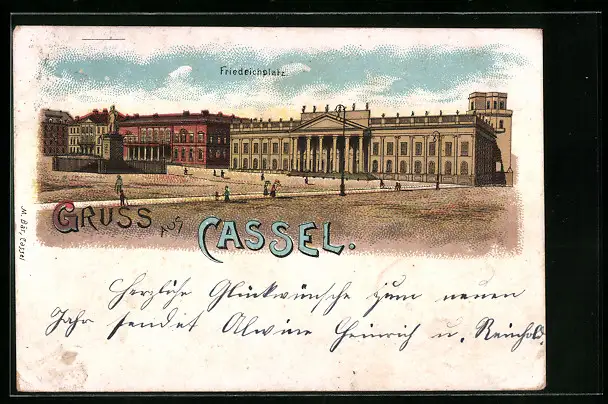 Friedrichplatz
GRUSS AUS
CASSEL.
M. Bär, Cassel
Herzliche Glückwünsche zum neuen
Jahr sendet Alwine Heinrich u. Reinhold.